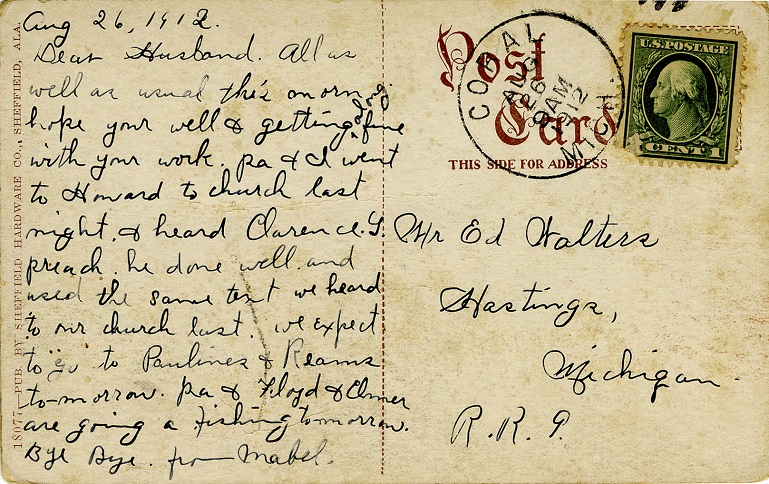 Aug 26, 1912.
Dear Husband. All as
well as usual this morn
hope your well & getting along fine
with your work. pa & I went
to Howard to church last
night. & heard Clarence. Y.
preach. he done well. and
used the same text we heard
to our church last. we expect
to go to Paulines & Reams
to-morrow. pa & Floyd & Elmer
are going a fishing tomorrow.
Bye Bye. from Mabel.
18077—PUB. BY SHEFFIELD HARDWARE CO., SHEFFIELD, ALA.
Post
Card
THIS SIDE FOR ADDRESS
CORAL
AUG
26
9AM
1912
MICH.
U.S. POSTAGE
1 CENT 1
Mr Ed Walters
Hastings,
Michigan.
R. R. 9.